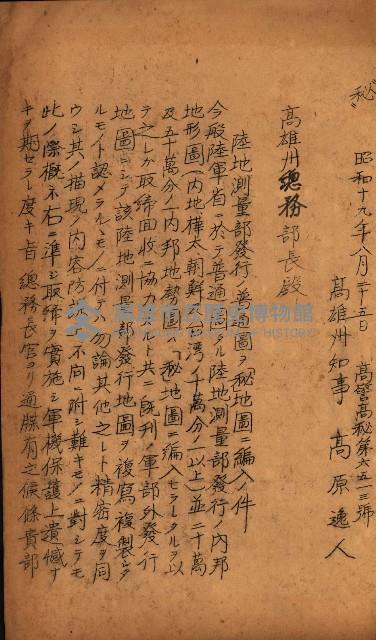 秘
昭和十九年八月二十五日 高警高秘第六五一三號
高雄州知事 高原逸人
高雄州總務部長殿
陸地測量部發行ノ普通圖ヲ秘地圖ニ編入ノ件
今般陸軍省ニ於テ普通圖タル陸地測量部發行ノ內邦
地形圖(內地樺太朝鮮臺灣ノ十萬分ノ一以上並二十萬
及五十萬分ノ一內邦地勢圖ヲ「秘」地圖ニ編入セラレタルヲ以
テ之レカ取締面收ニ協力スルト共ニ既刊ノ軍部外發行
地圖ニシテ該陸地測量部發行地圖ヲ複寫複製シタ
ルモノト認メラルルモノニ付テハ勿論其他之レト精密度ヲ同
ウシ其ノ描現ノ內容防諜上不問ニ附シ難キモノニ對シテモ
此ノ際概ネ右ニ準シ取締ヲ實施シ軍機保護上遺憾ナ
キヲ期セラレ度キ旨總務長官ヨリ通牒有之候條貴部
高雄市立歷史博物館